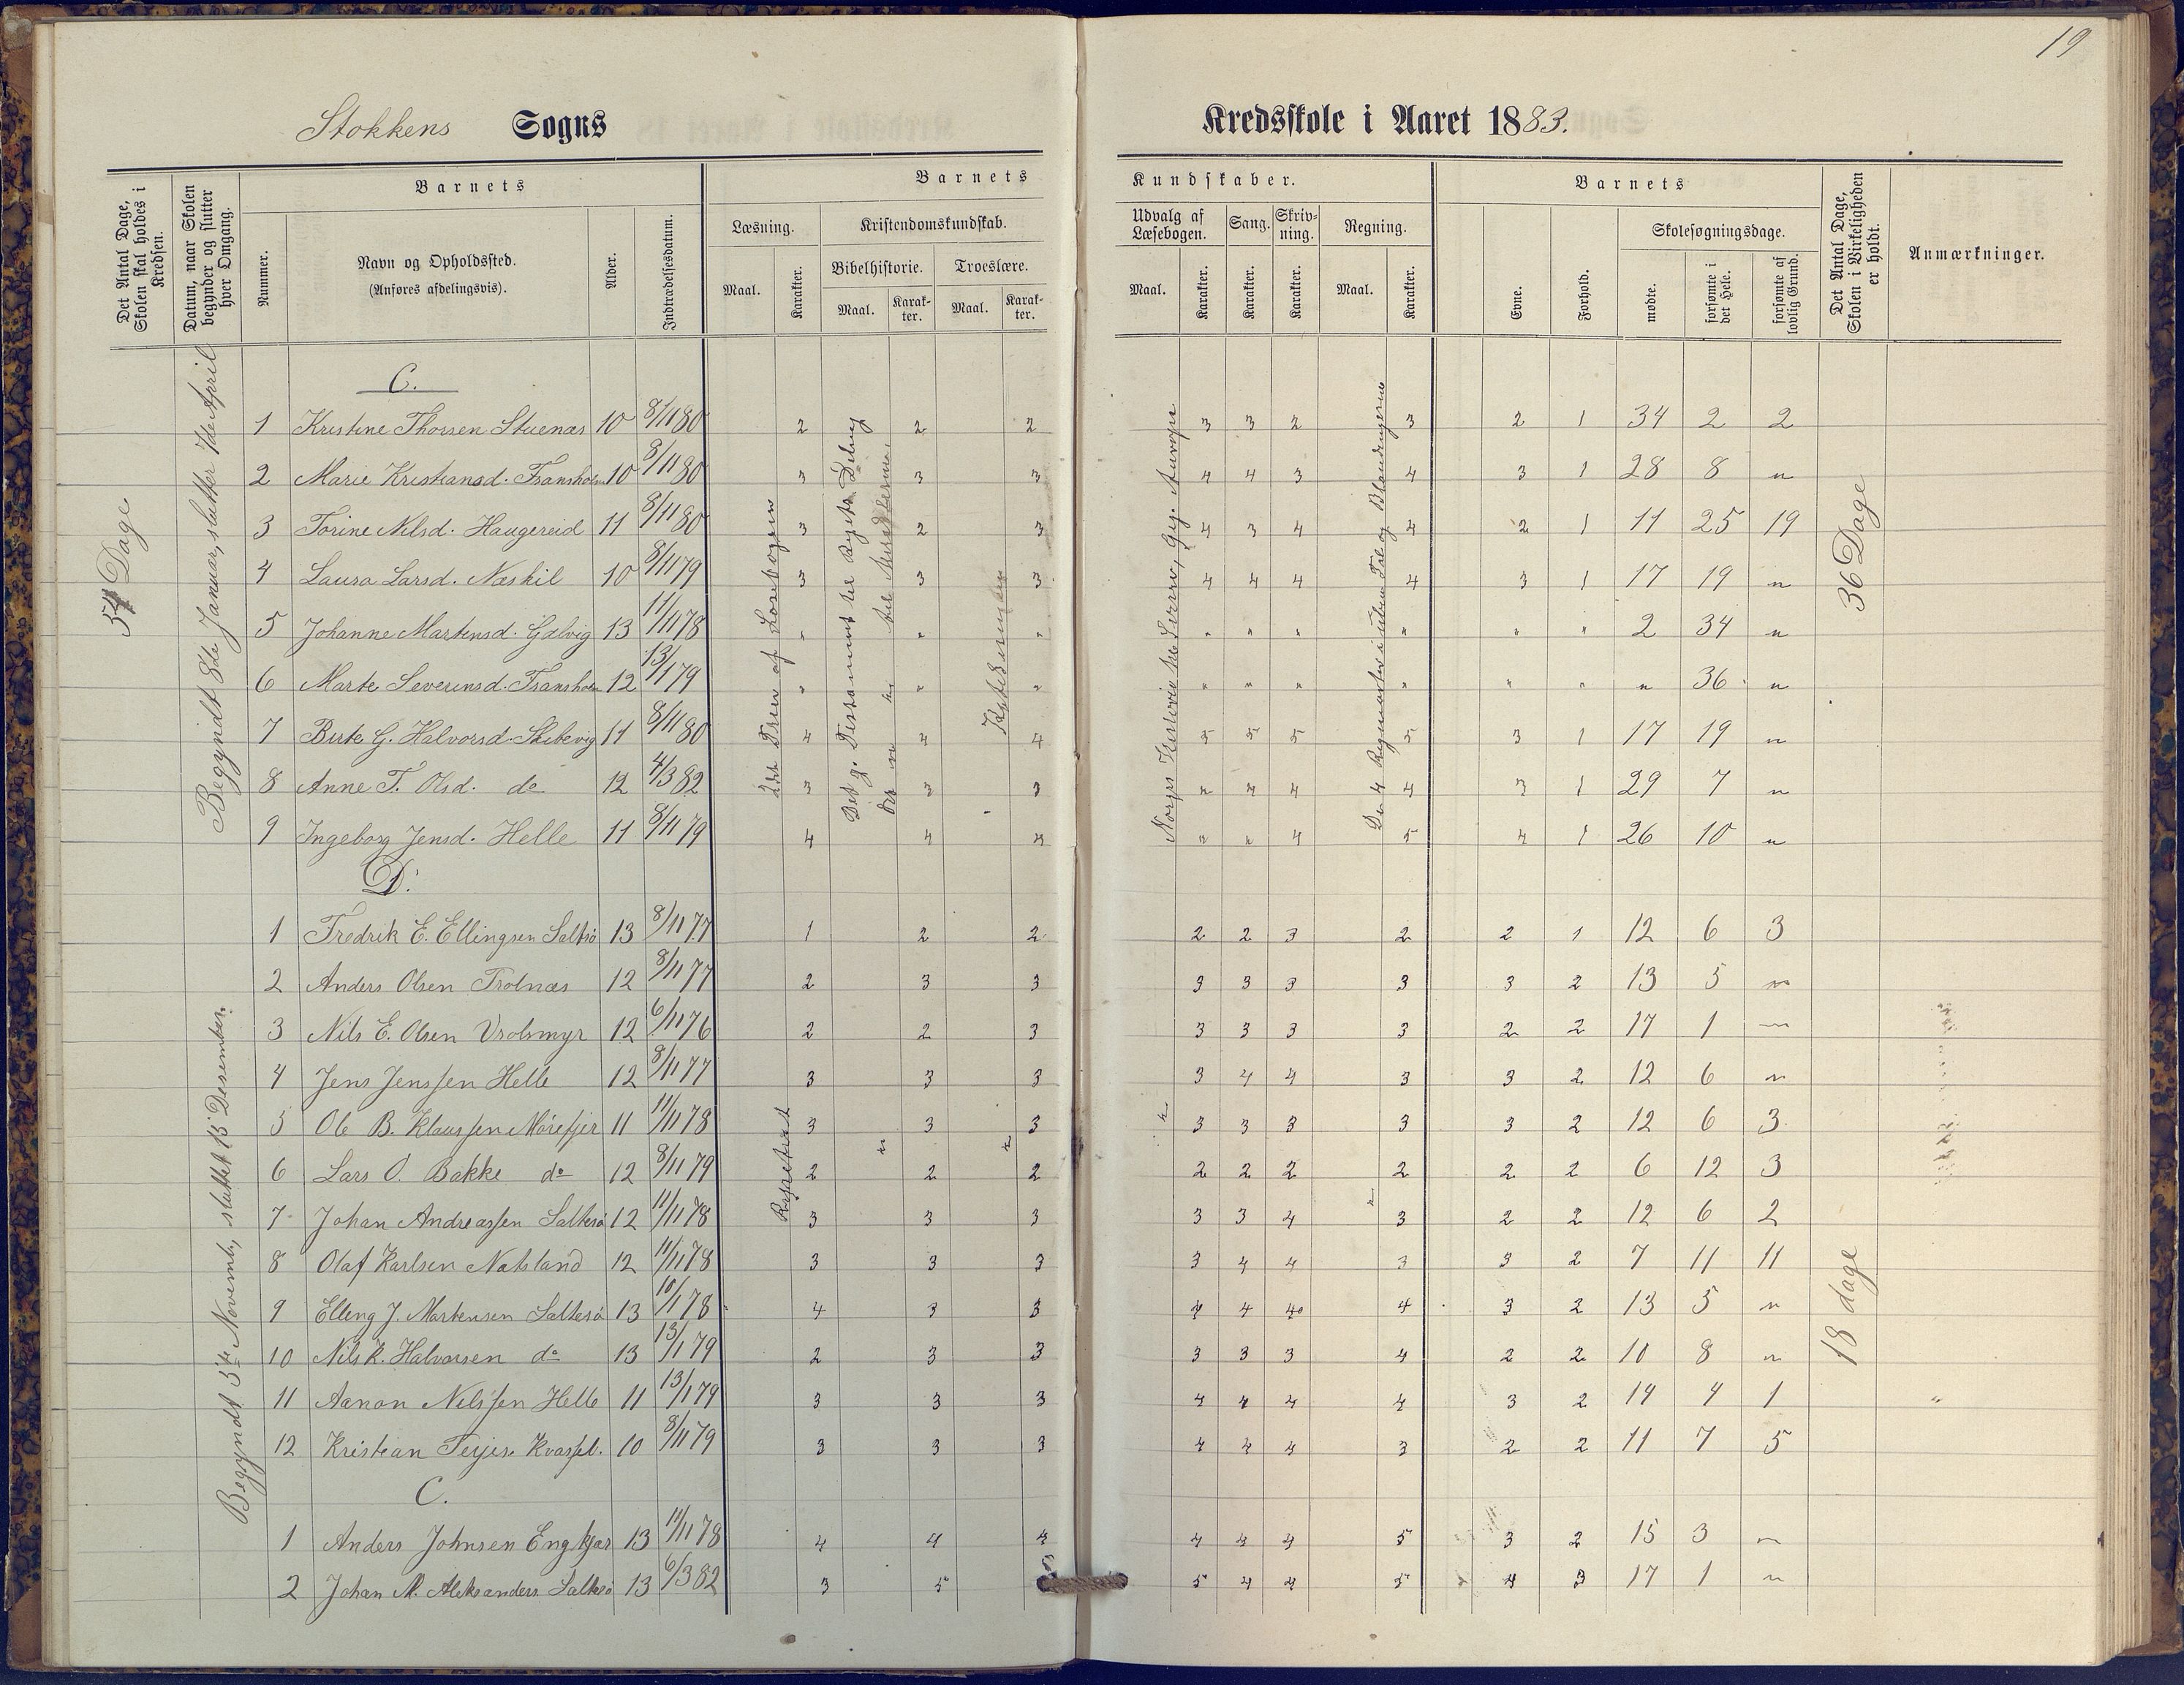 19
Stokkens Sogns Kredsskole i Aaret 1883.
Det Antal Dage, Skolen skal holdes i Kredsen.
Datum, naar Skolen begynder og slutter hver Omgang.
Barnets
Nummer.
Navn og Opholdssted.
(Anføres afdelingsvis).
Alder.
Indtrædelsesdatum.
Barnets Kundskaber.
Læsning.
Maal.
Karakter.
Kristendomskundskab.
Bibelhistorie.
Maal.
Karakter.
Troeslære.
Maal.
Karakter.
Udvalg af Læsebogen.
Maal.
Karakter.
Sang.
Karakter.
Skrivning.
Karakter.
Regning.
Maal.
Karakter.
Barnets
Evne.
Forhold.
Skolesøgningsdage.
mødte.
forsømte i det Hele.
forsømte af lovlig Grund.
Det Antal Dage, Skolen i Virkeligheden er holdt.
Anmærkninger.
54 Dage
Begyndt 8de Januar, slutter 7de April
36 Dage
C.
1 Kristine Thorsen Stuenæs 10 8/11 80 2 2 2 3 3 2 3 2 1 34 2 2
2 Marie Kristiansd. Fransholm 10 8/11 80 3 3 3 4 4 3 4 3 1 28 8 "
3 Torine Nilsd. Haugereid 11 8/11 80 3 2 3 4 3 4 4 2 1 11 25 19
4 Laura Larsd. Næskil 10 8/11 79 3 3 3 4 4 4 4 3 1 17 19 "
5 Johanne Martinsd. Galvig 13 11/11 78 " " " " " " " " " 2 34 "
6 Marte Severinsd. Fransholm 12 13/1 79 " " " " " " " " " " 36 "
7 Birte G. Halvorsd. Skibevig 11 8/11 80 4 4 4 5 5 5 5 3 1 17 19 "
8 Anne T. Olsd. do 12 4/3 82 3 3 3 " 4 4 4 3 1 29 7 "
9 Ingeborg Jensd. Helle 11 8/11 79 4 4 4 " " 4 5 4 1 26 10 "
2det Trin af Læsebogen
Katekismen
D.
Begyndt 5te Novemb., sluttet 15 Desember.
Repeteret
18 dage
1 Fredrik E. Ellingsen Saltrø 13 8/11 77 1 2 2 2 2 3 2 2 1 12 6 3
2 Anders Olsen Trolnæs 12 8/11 77 2 3 3 3 3 3 3 3 2 13 5 "
3 Nils E. Olsen Vrolsmyr 12 6/11 76 2 2 3 3 3 3 3 2 2 17 1 "
4 Jens Jenssen Helle 12 8/11 77 3 3 3 3 4 4 3 3 2 12 6 "
5 Ole B. Klaussen Mørefjær 11 11/11 78 3 3 3 3 3 3 3 3 2 12 6 3
6 Lars O. Bakke do 12 8/11 79 2 2 2 2 2 2 2 2 2 6 12 3
7 Johan Andreassen Salterø 12 11/11 78 3 3 3 3 3 4 3 2 2 12 6 2
8 Olaf Karlsen Natsland 12 11/11 78 3 3 3 3 4 4 3 3 2 7 11 11
9 Elling J. Martensen Salterø 13 10/1 78 4 3 3 4 4 4 4 3 2 13 5 "
10 Nils K. Halvorsen do 13 13/1 79 2 3 3 3 3 3 4 2 2 10 8 "
11 Aanon Nilssen Helle 11 13/1 79 3 3 3 4 4 4 4 3 2 14 4 1
12 Kristian Terjes. 10 8/11 79 3 3 3 4 4 4 3 2 2 11 7 5
C.
1 Anders Johnsen Engkjær 13 11/11 78 4 4 4 4 4 4 5 3 2 15 3 "
2 Johan M. Aleksanders. Salterø 13 6/3 82 3 5 5 5 4 4 5 4 3 17 1 "